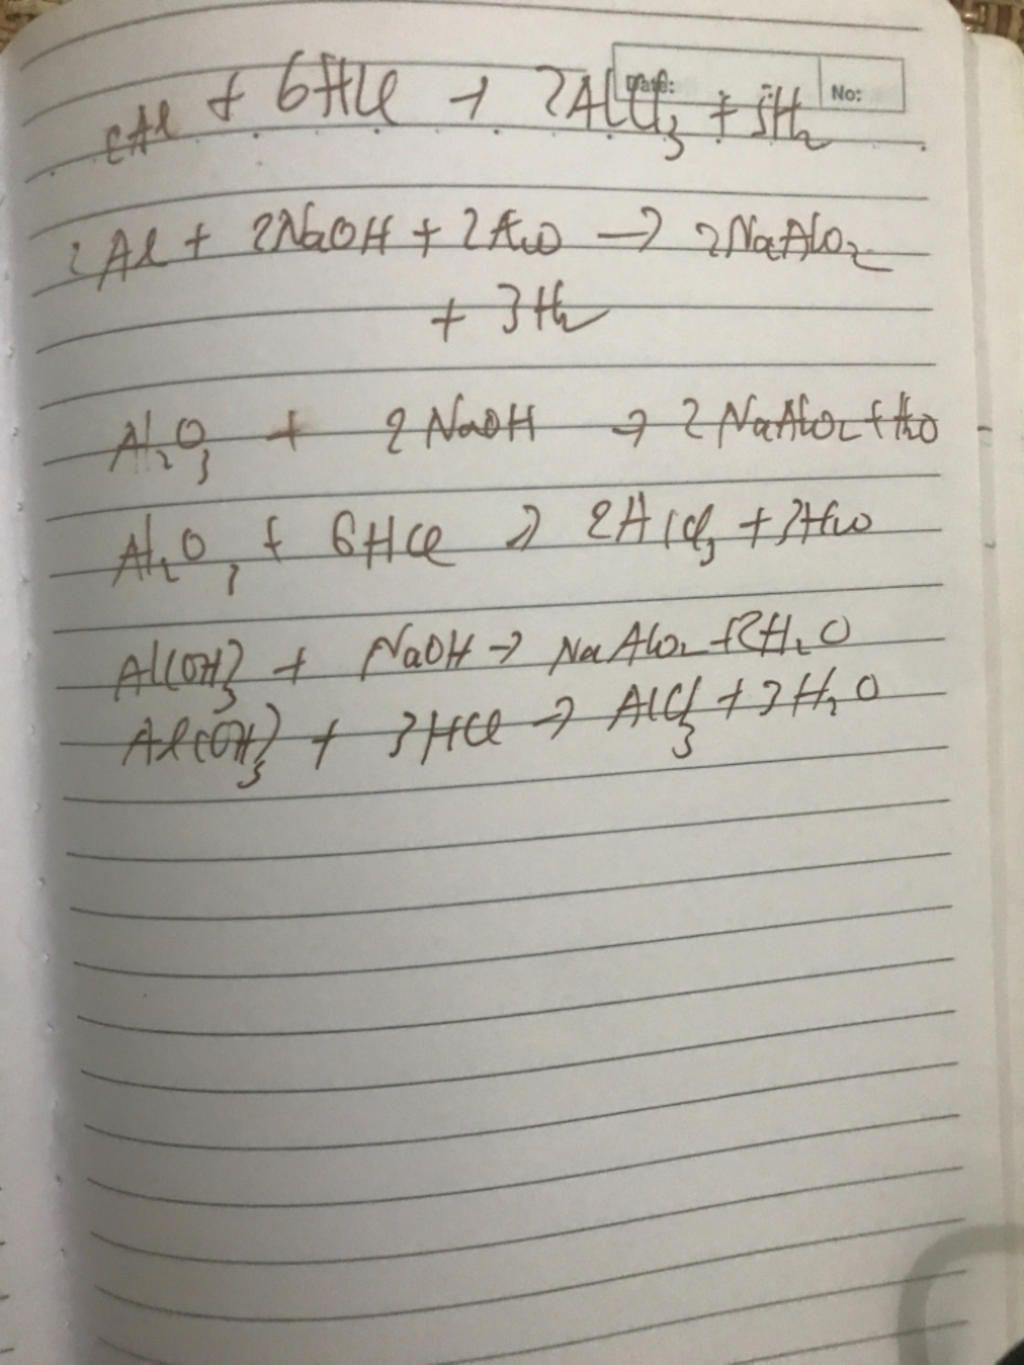 2Al + 6HCl → 2AlCl₃ + 3H₂
Date: No:
2Al + 2NaOH + 2H₂O → 2NaAlO₂
+ 3H₂
Al₂O₃ + 2NaOH → 2NaAlO₂ + H₂O
Al₂O₃ + 6HCl → 2AlCl₃ + 3H₂O
Al(OH)₃ + NaOH → NaAlO₂ + 2H₂O
Al(OH)₃ + 3HCl → AlCl₃ + 3H₂O